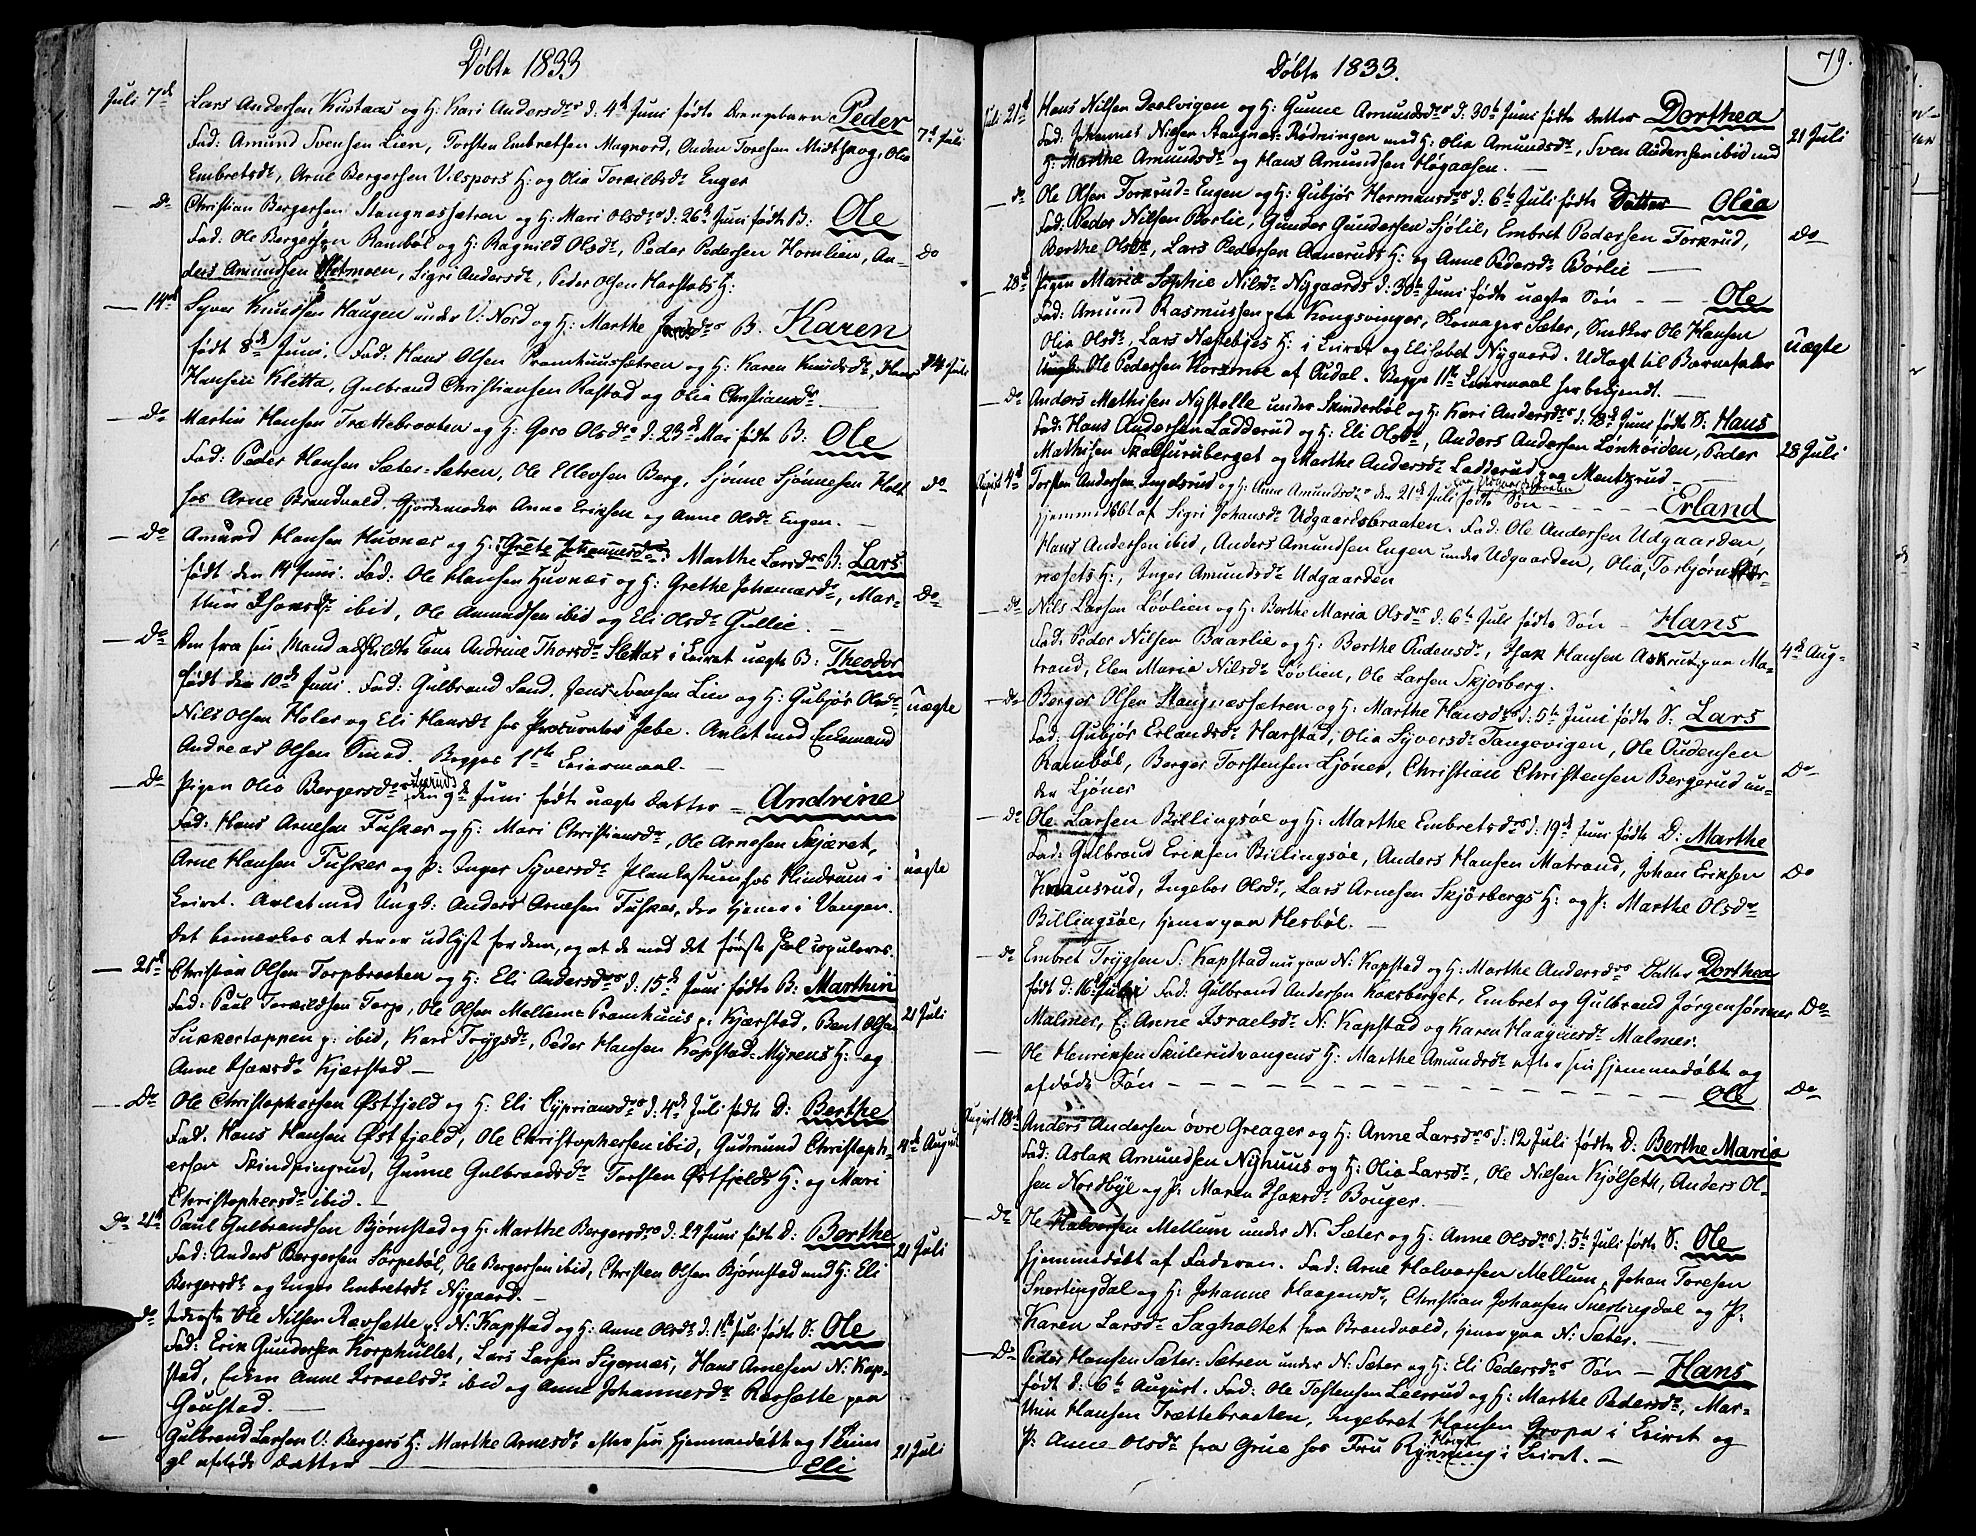 Døbte 1833
Juli 7de Lars Andersen Kustaas og H: Kari Andersdr d: 4de Juni fødte Drengebarn Peder
Fad: Amund Svensen Lien, Torsten Embretsen Magnord, Anden Toresen Midtskog, Olia 7de Juli
Embretsdr, Arne Bergersen Vilspors H: og Olia Torkildsdr Enger
— Do Christian Bergersen Stangnessætren og H: Mari Olsdr d: 26de Juni fødte B: Ole
Fad: Ole Bergersen Rambøl og H: Ragnild Olsdr, Peder Pedersen Hornlien, An- Do
ders Amundsen Mtmoen, Sigri Andersdr, Peder Olsen Harstads H:
— 14de Syver Knudsen Haugen under V: Nord og H: Marthe B: Karen
født 8de Juni. Fad: Hans Olsen Pramhuussætren og H: Karen Knudsdr, Hans 14 Juli
Hansen Kletta, Gulbrand Christiansen Rastad og Olia Christiansdr
— Do Martin Hansen Trættebraaten og H: Goro Olsdr d: 23de Mai fødte B: Ole
Fad: Peder Hansen Sæter-Sætren, Ole Ellevsen Berg, Sjønne Sjønnesen Holt Do
hos Arne Brandvold, Gjordemoder Anne Eriksen og Anne Olsdr Engen. —
— Do Amund Hansen Huvnæs og H: (Grete Johannesdr) Marthe Larsdr B: Lars
født den 14 Juni. Fad: Ole Hansen Huvnæs og H: Grethe Johannesdr, Mar- Do
thin Isaksdr ibid, Ole Amundsen ibid og Eli Olsdr Gullie. —
— Do Den fra sin Mand adskildte Kone Andrine Thorsdr Slettas i Leiret uægte B: Theodor
født den 10de Juni. Fad: Gulbrand Sand, Jens Svensen Lien og H: Gubjør Olsdr, uægte
Nils Olsen Holer og Eli Hansdr hos Procurator Jebe. Avlet med Enkemand
Andreas Olsen Smed. Begges 1ste Leiermaal.
— Do Pigen Olia Bergersdr Lierud den 9de Juni fødte uægte Datter — Andrine
Fad: Hans Arnesen Fusker og H: Mari Christiansdr, Ole Arnesen Skjæret,
Arne Hansen Fusker og P: Inger Syversdr Plankestuen hos Hindrum i uægte
Leiret. Avlet med Ungk: Anders Arnesen Fusker, der tjener i Vangen.
Det bemærkes at der er udlyst for dem, og at de med det første skal copuleres.
— 21de Christian Olsen Torpbraaten og H: Eli Andersdr d: 15de Juni fødte B: Marthin
Fad: Paul Torkildsen Torp, Ole Olsen Mellem-Pramhuus p: Kjærstad, Bent Olsen 21 Juli
Sukkertoppen p: ibid, Kari Trygsdr, Peder Hansen Kopstad-Myrens H: og
Anne Isaksdr Kjærstad —
— Do Ole Christophersen Østfjeld og H: Eli Cypriansdr d: 4de Juli fødte D: Berthe
Fad. Hans Hansen Østfjeld, Ole Christophersen ibid, Gudmund Christoph- 4de August
ersen Skindpingrud, Gunne Gulbrandsdr Torsten Østfjelds H: og Mari
Christophersdr ibid. —
Do 21de Paul Gulbrandsen Bjørnstad og H: Marthe Bergersdr d: 29 Juni fødte D: Berthe
Fad: Anders Bergersen Torpebøl, Ole Bergersen ibid, Christen Olsen Bjørnstad med H: Eli 21 Juli
Bergersdr og Inger Embretsdr Nygaard. —
Do Inderste Ole Nilsen Ravsætte p: N: Kopstad og H: Anne Olsdr d: 1ste Juli fødte S: Ole
Fad: Erik Gundersen Korphullet, Lars Larsen Sigernæs, Hans Arnesen N: Kop-
stad, Enken Anne Israelsdr ibid og Anne Johannesdr Ravsætte paa
Goustad. —
— Gulbrand Larsen V: Bergers H: Marthe Arnesdr efter sin hjemmedøbte og 1 Time 21 Juli
gl afdøde Datter — Eli
Døbte 1833.
79.
Juli 21de Hans Nilsen Dælvigen og H: Gunne Amundsdr d: 30te Juni fødte Datter Dorthea
Fad: Johannes Nilsen Stangnes-Rødningen med H: Olia Amundsdr, Sven Andersen ibid med 21 Juli
H: Marthe Amundsdr og Hans Amundsen Høgaasen. —
— Do Ole Olsen Torkrud-Engen og H: Gubjør Hermansdr d: 6te Juli fødte Datter — Olia
Fad: Peder Nilsen Børlie, Gunder Gundersen Sjølie, Embret Pedersen Torkrud, Do
Berthe Olsdr, Lars Pedersen Aaneruds H: og Anne Pedersdr Børlie —
— 28de Pigen Maria Sophie Nilsdr Nygaards d: 30te Juni fødte uægte Søn — — Ole
Fad: Amund Rasmussen paa Kongsvinger, Skomager Sæter, Snedker Ole Hansen
Olia Olsdr, Lars Næstebyes H: i Leiret og Elisabet Nygaard. Udlagt til Barnefader uægte
Ungk: Ole Pedersen Korsmoe af Eidal. Begges 1ste Leiermaal her bekjendt. —
— Do Anders Mathisen Nystelle under Skinderbøl og H: Kari Andersdr d: 18de Juni fødte S: Hans
Fad: Hans Andersen Ladderud og H: Eli Olsdr, Anders Andersen Lønhøiden, Peder 28 Juli
Mathisen Skasfuruberget og Marthe Andersdr Ladderud og Mentzrud. —
August 4de Torsten Andersen Ingelsrud og H: Anne Amundsdr den 21de Juli fødte Søn — Erland
hjemmedøbt af Sigri Johansdr Udgaardsbraaten. Fad: Ole Andersen Udgaarden,
Hans Andersen ibid, Anders Amundsen Engen under Udgaarden, Olia, Torbjørn
næsets H:, Inger Amundsdr Udgaarden
— Do Nils Larsen Løvlien og H: Berthe Maria Olsdr d: 6te Juli fødte Søn — Hans
Fad: Peder Nilsen Baarlie og H: Berthe Audensdr, Isak Hansen Askrud paa Ma- 4de Aug-
trand, Elen Maria Nilsdr Løvlien, Ole Larsen Skjørberg.
— Do Berger Olsen Stangnessætren og H: Marthe Hansdr d: 5te Juni fødte S: Lars
Fad: Gubjør Erlandsdr Harstad, Olia Syversdr Tangevigen, Ole Audensen
Rambøl, Berger Torstensen Ljøner, Christian Christensen Bergerud un- Do
der Ljøner
— Do Ole Larsen Billingsøe og H: Marthe Embretsdr d: 19de Juni fødte D: Marthe
Fad: Gulbrand Eriksen Billingsøe, Anders Hansen Matrand, Johan Eriksen Do
Knausrud, Ingebor Olsdr, Lars Arnesen Skjørbergs H: og P: Marthe Olsdr
Billingsøe, tjener paa Hesbøl. —
— Do Embret Trygsen S. Kopstad nu paa N: Kopstad og H: Marthe Andersdr Datter Dorthea
født d: 16de Juli Fad: Gulbrand Andersen Korsberget, Embret og Gulbrand Jørgensønner Do
Malmer, E: Anne Israelsdr N: Kopstad og Karen Haagensdr Malmer.
— Ole Henriksen Skulerudvangens H: Marthe Amundsdr efter sin hjemmedøbte og
afdøde Søn — — — — Ole Do
August 18de Anders Andersen øvre Greager og H: Anne Larsdr d: 12 Juli fødte D: Berthe Maria
Fad: Aslak Amundsen Nyhuus og H: Olia Larsdr, Ole Nilsen Kjølseth, Anders Ol-
sen Nordbye og P: Maren Isaksdr Bouger. —
— Do Ole Halvorsen Mellum under N: Sæter og H: Anne Olsdr d: 5te Juli fødte S: Ole
hjemmedøbt af Faderen. Fad: Arne Halvorsen Mellum, Johan Toresen
Snertingdal og H: Johanne Haagensdr, Christian Johansen Snertingdal og P:
Karen Larsdr Sagholtet fra Brandvold, tjener paa N: Sæter. —
— Do Peder Hansen Sæter-Sætren under N: Sæter og H: Eli Pedersdr Søn — Hans
født d: 6te August. Fad: Ole Tostensen Leerrud og H: Marthe Pedersdr, Mar-
thin Hansen Trættebraaten, Ingebret Hansen Gropa i Leiret og
P: Anne Olsdr fra Grue hos Fru Rynning i Leiret. —